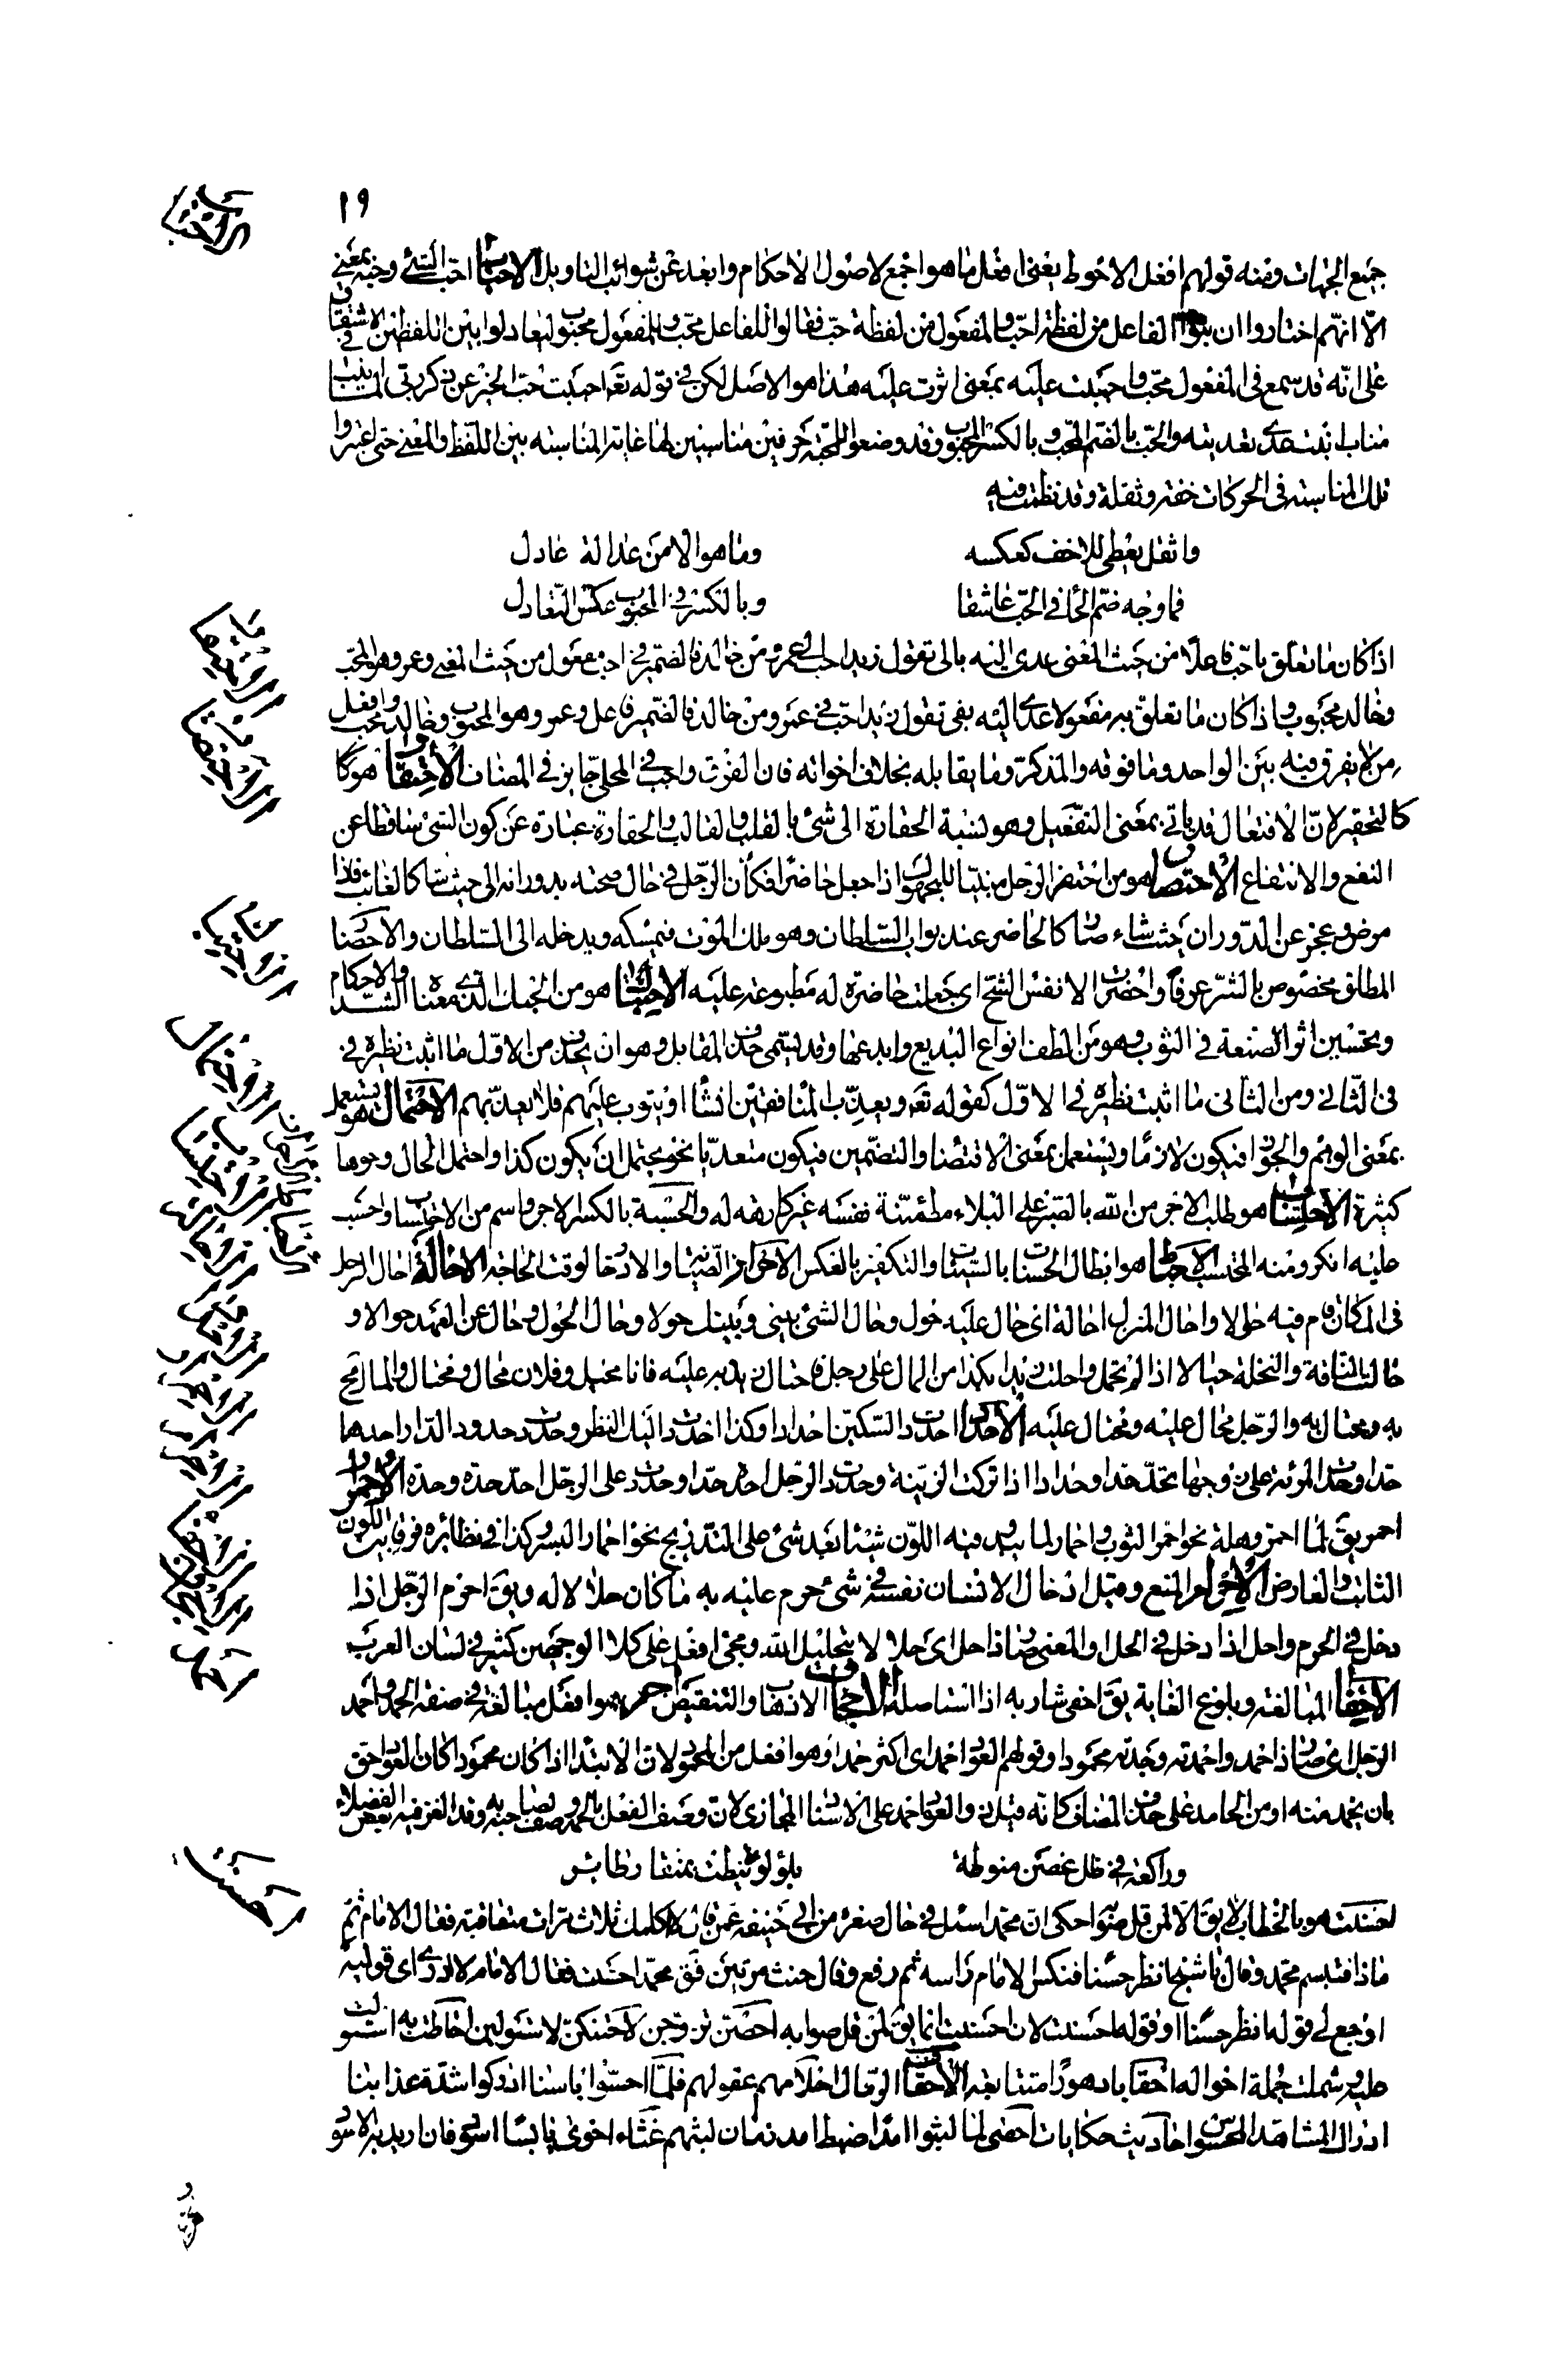 ١٩
جميع الجهات ومنه قولهم افعل الاحوط يعنى افعل ما هو اجمع لاصول الاحكام وابعد عن شوائب التاويل الاحباب احب الشئ وحبه بمعنى
الا انهم اختاروا ان بنوا الفاعل من لفظة احب والمفعول من لفظة حب فقالوا للفاعل محب وللمفعول محبوب ليعادلوا بين اللفظين فى الاشتقاق
على انه قد سمع فى المفعول محب واحببت عليه بمعنى اثرت عليه هذا هو الاصل لكن فى قوله تعا احببت حب الخير عن ذكر ربى لما انيب
مناب انبت عدى تعديته والحب بالضم المحب و بالكسر المحبوب وقد وضعوا للمحبة حرفين مناسبين لها غاية المناسبة بين اللفظ والمعنى حتى اعتبروا
تلك المناسبة فى الحركات خفة وثقلة وقد نظمت فيه
واثقل يعطى للاخف كعكسه وما هو الا من عدالة عادل
فما وجه ضم الحا فى الحب عاشقا وبالكسر فى المحبوب عكس التعادل
اذا كان ما تعلق باحب فاعلا من حيث المعنى عدى اليه بالى تقول زيد احب الى عمرو من خالد فالضمير فى احب مفعول من حيث المعنى وعمرو هو المحب
وخالد محبوب واذا كان ما تعلق به مفعولا عدى اليه بفى تقول زيد احب فى عمرو من خالد فالضمير فاعل وعمرو هو المحبوب وخالد محب وافعل
من لا يفرق فيه بين الواحد وما فوقه والمذكر وما يقابله بخلاف اخواته فان الفرق واجب فى المحلى جايز فى المضاف الاحتقار هو كا
كالتحقير لان الافتعال قد ياتى بمعنى التفعيل وهو نسبة الحقارة الى شئ بالقلب والقالب والحقارة عبارة عن كون الشئ ساقطا عن
النفع والانتفاع الاحتضار هو من احتضر الرجل مبنيا للمجهول اذا جعل حاضرا فكان الرجل فى حال صحته بدورانه الى حيث شا كالغائب فاذا
مرض وعجز عن الدوران حيث شاء صار كالحاضر عند بواب السلطان وهو ملك الموت فيمسكه ويدخله الى السلطان والاحضار
المطلق مخصوص بالشر عرفا واحضرت الانفس الشح اى جعلت حاضرة له مطبوعة عليه الاحتباك هو من الحبك الذى معناه الشد والاحكام
وتحسين اثر الصنعة فى الثوب وهو من الطف انواع البديع وابدعها وقد يسمى حذف المقابل وهو ان يحذف من الاول ما اثبت نظيره فى
فى الثانى ومن الثانى ما اثبت نظيره فى الاول كقوله تعا ويعذب المنافقين ان شا او يتوب عليهم فلا يعذبهم الاحتمال هو يستعمل
بمعنى الوهم والجواز فيكون لازما ويستعمل بمعنى الاقتضا والتضمين فيكون متعديا نحو يحتمل ان يكون كذا واحتمل الحال وجوها
كثيرة الاحتساب هو طلب الاجر من الله بالصبر على البلاء مطمئنة نفسه غير كارهة له والحسبة بالكسر الاجر واسم من الاحتساب واحتسب
عليه انكر ومنه المحتسب الاحباط هو ابطال الحسنات بالسيئات والتكفير بالعكس الاحراز الصيانة والادخار لوقت الحاجة الاحالة احال الرجل
فى المكان قام فيه حولا واحال المنزل احالة اى حال عليه حول وحال الشئ بينى وبينك حولا وحال الحول وحال عن العهد حوالا و
حالت الناقة والنخلة حيالا اذا لم تحمل واحلت زيدا بكذا من المال على رجل فاحتال زيد به عليه فانا محيل وفلان محال ومحتال والمال محال
به ومحتال به والرجل محال عليه ومحتال عليه الاحداد احددت السكين احدادا وكذا احددت اليك النظر وحددت حدود الدار احدها
حدا وحدت المرئة على زوجها تحد حدا وحدادا اذا تركت الزينة وحددت الرجل احده حدا وحددت على الرجل احد حدة وحدة الاحمرار
احمر يق لما احمر وهلة نحو احمر الثوب واحمار لما يبدو فيه اللون شيئا بعد شئ على التدريج نحو احمار البسر وكذا فى نظائره فرق بين اللون
الثابت والعارض الاحرام المنع وقيل ادخال الانسان نفسه فى شئ حرم عليه به ما كان حلالا له ويق احرم الرجل اذا
دخل فى الحرم واحل اذا دخل فى الحل والمعنى صار ذا حل اى حلالا بتحليل الله ومجئ افعل على كلا الوجهين كثير فى لسان العرب
الاحفاء المبالغة وبلوغ الغاية يق احفى شاربه اذا استاصله الاجحاف الاذهاب والتنقيص احمد هو افعل مبالغة فى صفة الحمد واحمد
الرجل اى صار ذا حمد واحمدته وجدته محمودا وقولهم العود احمد اى اكثر حمدا وهو افعل من المحمود لان الابتدا اذا كان محمودا كان العود احق
بان يحمد منه او من الحامد على حذف المضاف كانه قيل ذو العود احمد على الاسناد المجازى لان وصف الفعل بالحمد وصف لصاحبه به وقد الغز فيه بعض الفضلاء
وراكعة فى ظل غصن منوطة بلؤلؤة نيطت بمنقار طائر
احسنت هو بالخطاب لا يق الا لمن قل صوابه احكى ان محمدا سئل فى حال صغره من ابى حنيفة عمن قال لا كلمك ثلاث مرات متعاقبة فقال الامام ثم
ماذا فتبسم محمد وقال يا شيخ انظر حسنا فنكس الامام راسه ثم رفع وقال حنث مرتين فق محمد احسنت فقال الامام لا ادرى اى قوليه
اوجع لى قوله انظر حسنا او قوله احسنت لان احسنت انما يق لمن قل صوابه احصن تزوجن لاحتنكن لاستولين احاطت به استولت
عليه وشملت جملة احواله احقابا دهورا متتابعة الاحقاف الرمال احلامهم عقولهم فلما احسوا باسنا ادركوا شدة عذابنا
ادراك المشاهد المحسوس احاديث حكايات احصى لما لبثوا امدا ضبط امد زمان لبثهم غثاء احوى يابسا اسود فان اريد به الاسود